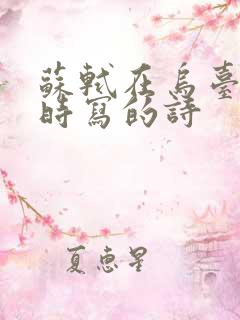 蘇軾在烏臺
時寫的詩
夏惠星